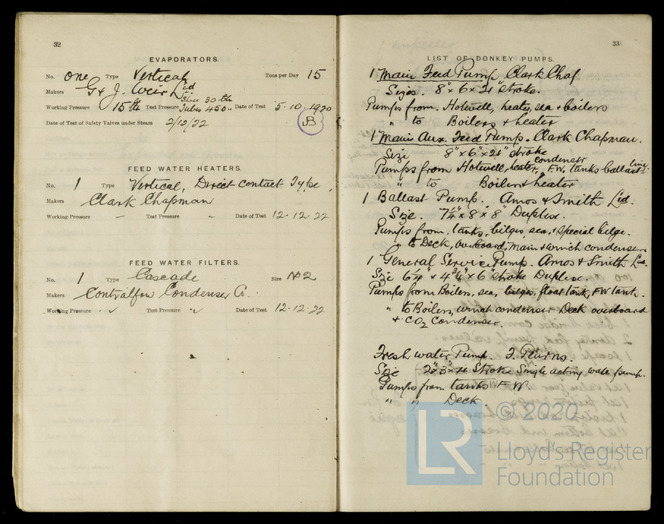 32
EVAPORATORS.
No. One Type Vertical Tons per Day 15
Makers G & J. Weir Ltd
Working Pressure 15 lbs Test Pressure Shell 30 lbs Tubes 450 Date of Test 5.10.1920
Date of Test of Safety Valves under Steam 2/12/22 JB
FEED WATER HEATERS.
No. 1 Type Vertical, Direct Contact Type
Makers Clark Chapman
Working Pressure - Test Pressure - Date of Test 12.12.22
FEED WATER FILTERS.
No. 1 Type Cascade Size No 2
Makers Contraflow Condenser C.
Working Pressure - Test Pressure - Date of Test 12.12.22
33
LIST OF DONKEY PUMPS.
1 Main Feed Pump Clark Chap
Size. 8" x 6" x 21" stroke.
Pumps from Hotwell, heater, sea & boilers
" to Boilers & heater
1 Main Aux. Feed Pump. Clark Chapman.
Size 8" x 6" x 21" stroke
Pumps from Hotwell, heater, condenser F.W. tanks ballast line
" to Boilers & heater
1 Ballast Pump. Amos & Smith Ltd.
Size. 7½ x 8 x 8 Duplex.
Pumps from, tanks, bilges, sea, & special bilge.
" to Deck, overboard, main & winch condensers
1 General Service Pump. Amos & Smith Ltd.
Size 6" x 6" stroke Duplex.
Pumps from Boilers, sea, bilges, float tank, F.W tank.
" to Boilers, winch condenser Deck overboard
& CO2 Condenser.
Fresh water Pump.
Size Stroke Single acting pump.
Pumps from tanks F.W
" " Deck
© 2020
LR
Lloyd's Register
Foundation